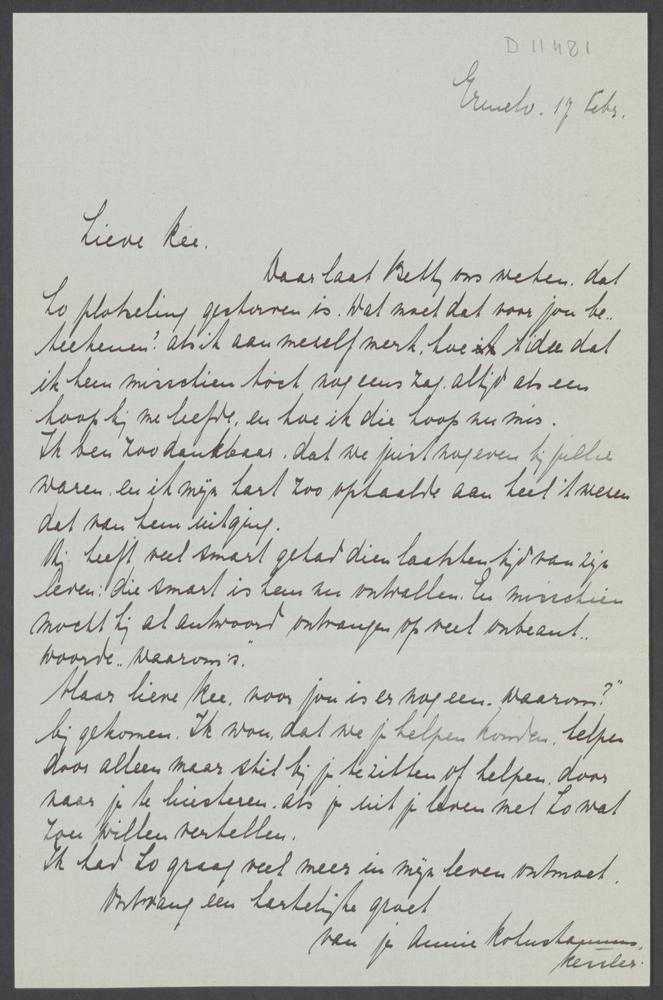 D 11481
Ermelo. 17 Febr.
Lieve Kee.
Daar laat Betty ons weten. dat
Lo plotseling gestorven is. Wat moet dat voor jou be..
teekenen? als ik aan mezelf merk, hoe 't idee dat
ik hem misschien toch nog eens zag. altijd als een
hoop bij me leefde, en hoe ik die hoop nu mis.
Ik ben zoo dankbaar. dat we juist nog even bij jullie
waren. en ik mijn hart zoo ophaalde aan heel 't wezen
dat van hem uitging.
Hij heeft veel smart gehad dien laatsten tijd van zijn
leven: die smart is hem nu ontvallen. En misschien
mocht hij al antwoord ontvangen op veel onbeant..
woorde „waarom's".
Maar lieve Kee, voor jou is er nog een „waarom?"
bij gekomen. Ik wou, dat we je helpen konden, helpen
door alleen maar stil bij je te zitten of helpen door
naar je te luisteren. als je uit je leven met Lo wat
zou willen vertellen.
Ik had Lo graag veel meer in mijn leven ontmoet.
Ontvang een hartelijke groet
van je Annie Kohnstamm,
Kessler.